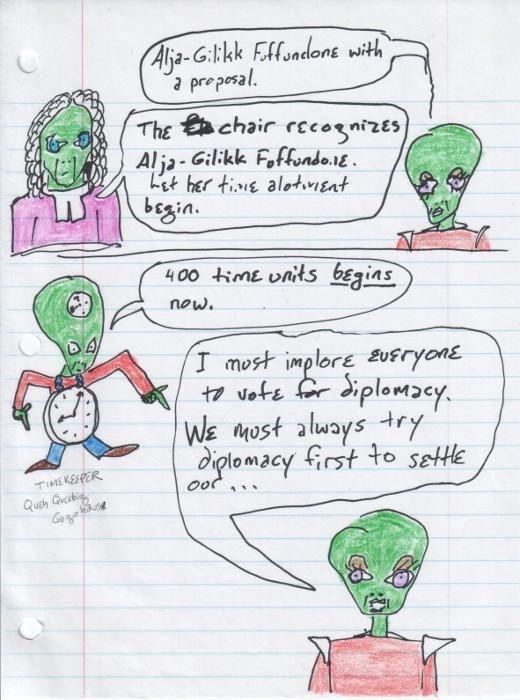 Alja-Gilikk Foffundone with
a proposal.
The chair recognizes
Alja-Gilikk Foffundone.
Let her time alotment
begin.
400 time units begins
now.
I must implore everyone
to vote for diplomacy.
We must always try
diplomacy first to settle
our...
TIMEKEEPER